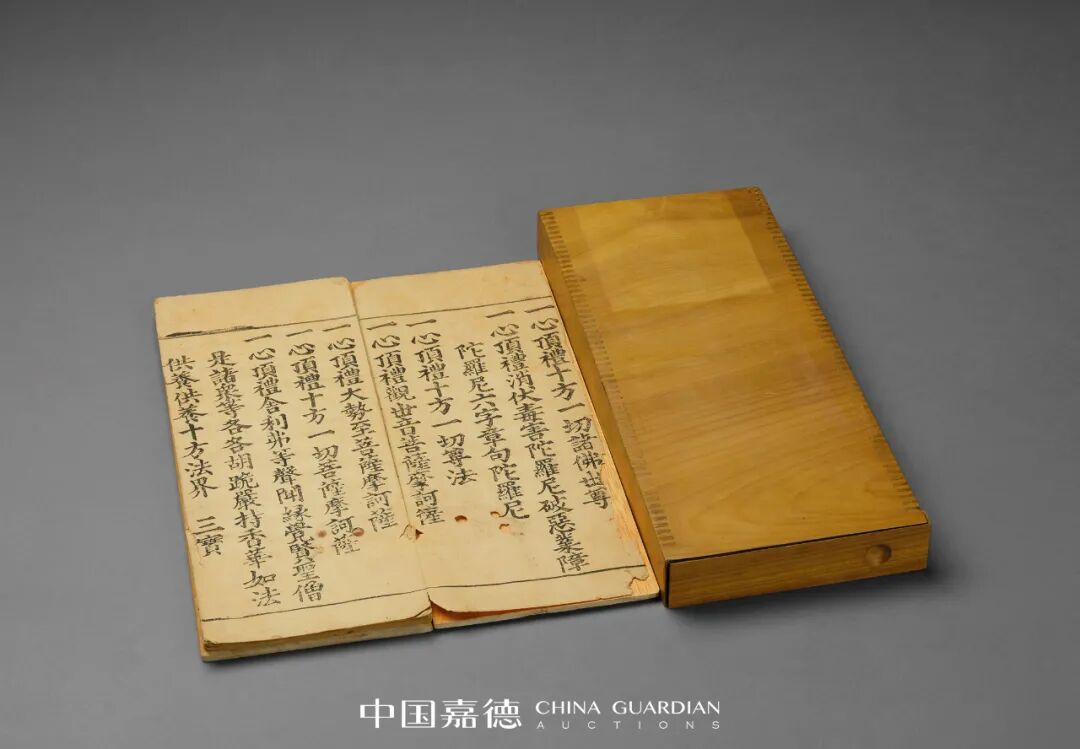 一心頂禮十方一切諸佛世尊
一心頂禮消伏毒害陀羅尼破惡業障
陀羅尼六字章句陀羅尼
一心頂禮十方一切尊法
一心頂禮觀世音菩薩摩訶薩
一心頂禮大勢至菩薩摩訶薩
一心頂禮十方一切菩薩摩訶薩
一心頂禮舍利弗等聲聞緣覺賢聖僧
是諸衆等各各胡跪嚴持香華如法
供養供養十方法界 三寶
中国嘉德 CHINA GUARDIAN
AUCTIONS